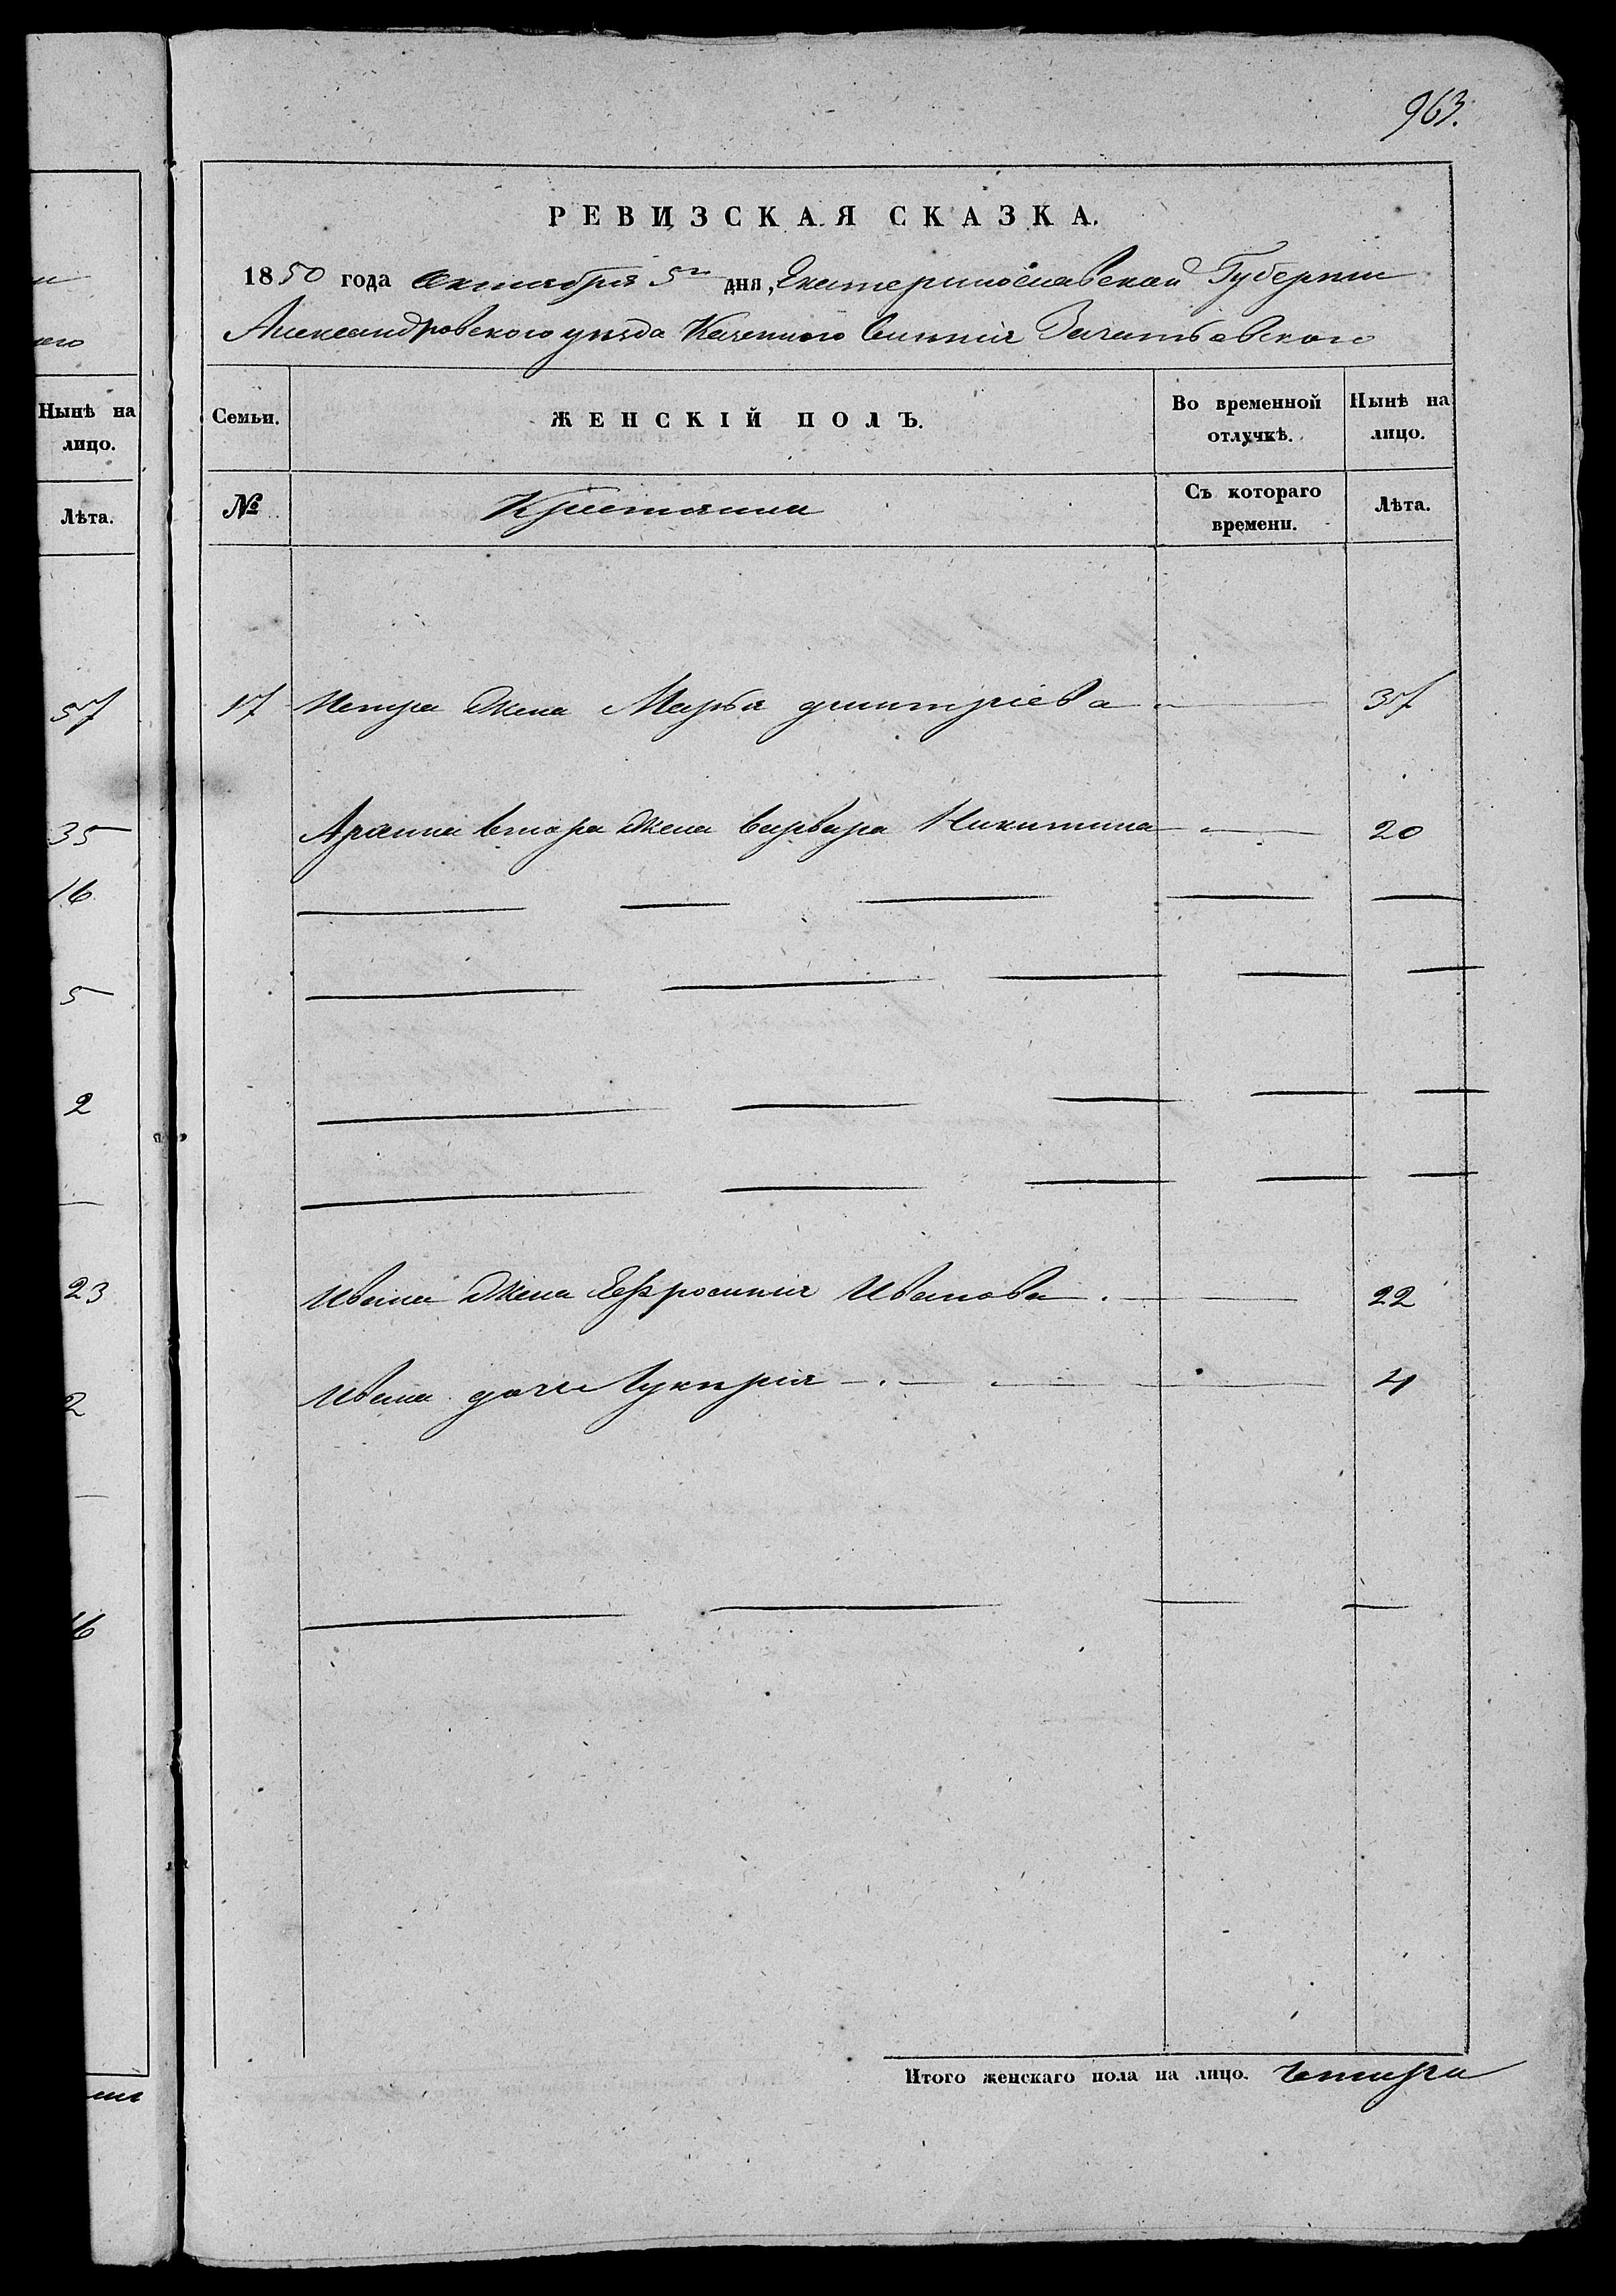 963.
РЕВИЗСКАЯ СКАЗКА.
1850 года октября 5го дня, Екатеринославской Губернии
Александровского уѣзда Казенного Селенія Зачатьевского
Семьи.
ЖЕНСКІЙ ПОЛЪ.
Во временной отлучкѣ.
Нынѣ на лицо.
№
Крестьянка
Съ котораго времени.
Лѣта.
17 Петра жена Марья дмитріева 37
втора жена варвара Никитина 20
Ивана жена Ефросинія Иванова 22
Ивана дочь Лукирія 4
Итого женскаго пола на лицо. Чотыри
Нынѣ на
лицо.
Лѣта.
57
35
16
5
2
23
2